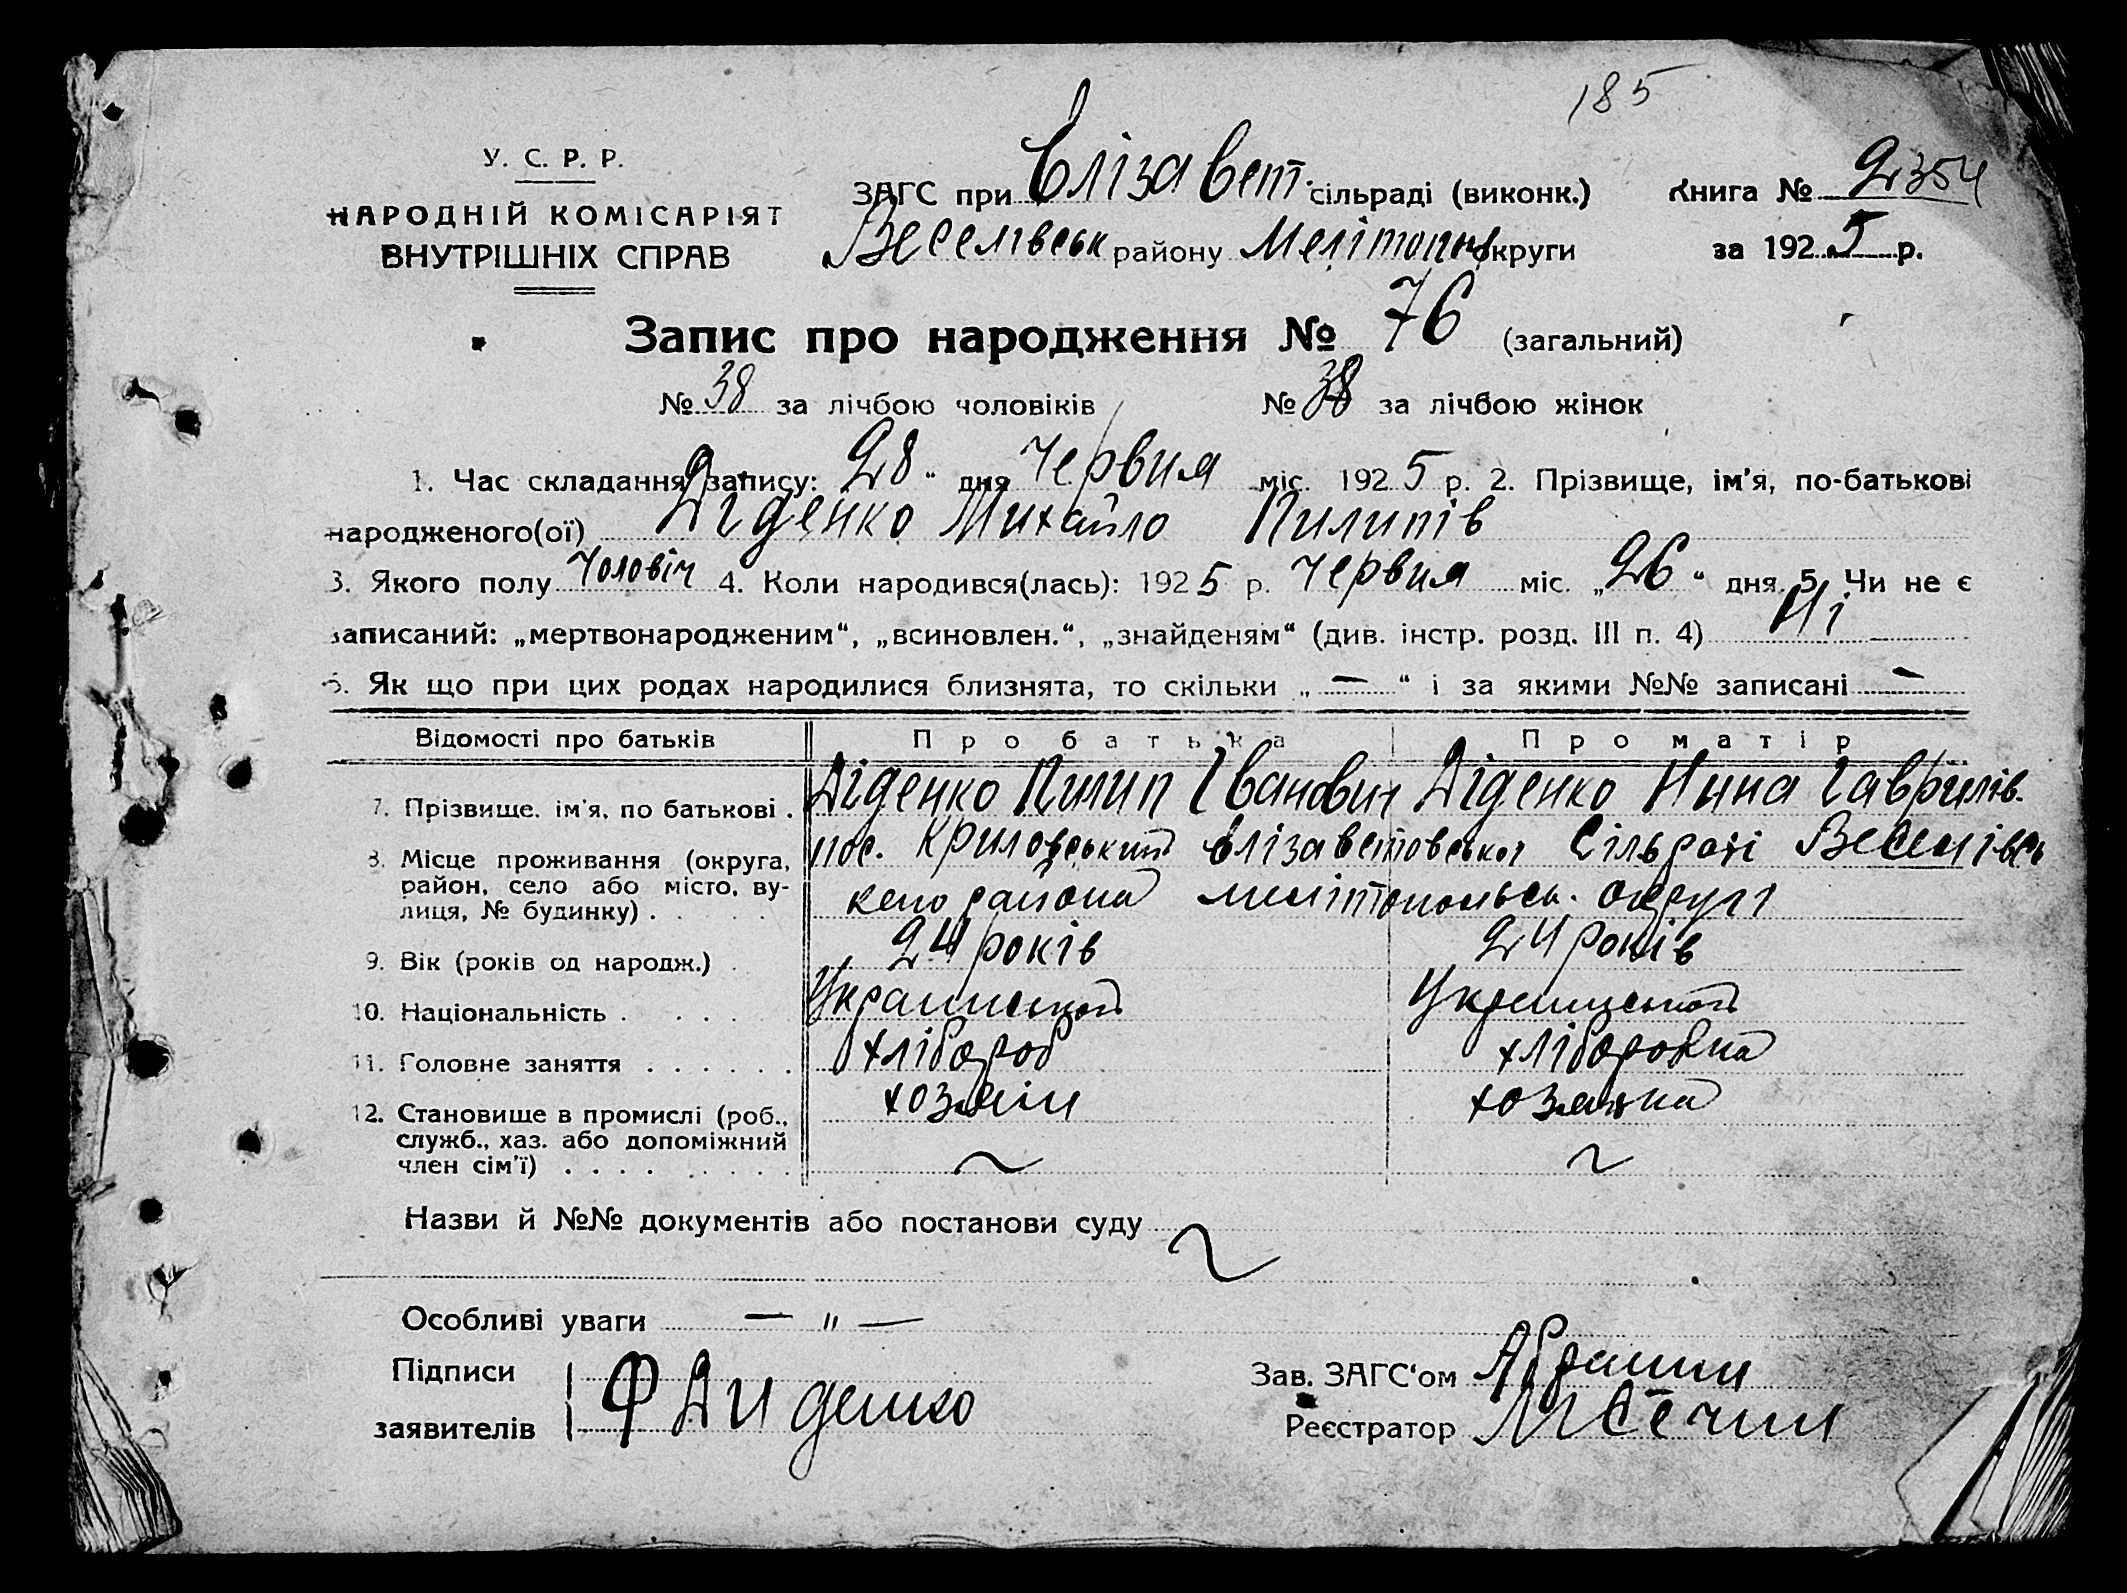 185
У. С. Р. Р.
НАРОДНІЙ КОМІСАРІЯТ
ВНУТРІШНІХ СПРАВ
ЗАГС при Єлізавет. сільраді (виконк.)
Веселівськ району Мелітопн округи
Книга № 2354
за 1925 р.
Запис про народження № 76 (загальний)
№ 38 за лічбою чоловіків № 38 за лічбою жінок
1. Час складання запису: 28 “ дня Червня міс. 1925 р. 2. Прізвище, ім'я, по-батькові
народженого(ої) Діденко Михайло Пилипів
3. Якого полу Чоловіч 4. Коли народився(лась): 1925 р. Червня міс. „26“ дня. 5. Чи не є
записаний: „мертвонародженим“, „всиновлен.“, „знайденям“ (див. інстр. розд. III п. 4) Ні
6. Як що при цих родах народилися близнята, то скільки „ — “ і за якими №№ записані —
Відомості про батьків Про батька Про матір
7. Прізвище, ім'я, по батькові . Діденко Пилип Іванович Діденко Нина Гаврилів.
8. Місце проживання (округа, район, село або місто, вулиця, № будинку) . . . пос. Криловський Єлізаветовської Сільраді Веселівсь
кого района мелітопольськ. округи
9. Вік (років од народж.) . 24 років 24 років
10. Національність . . . . Украинської Украинської
11. Головне заняття . . . . . . хлібороб хліборобка
12. Становище в промислі (роб., служб., хаз. або допоміжний член сім'ї) . . . . . . . . . хозяїн хозяйка
Назви й №№ документів або постанови суду
Особливі уваги — „ —
Підписи
заявителів Ф Диденко
Зав. ЗАГС'ом
Реєстратор